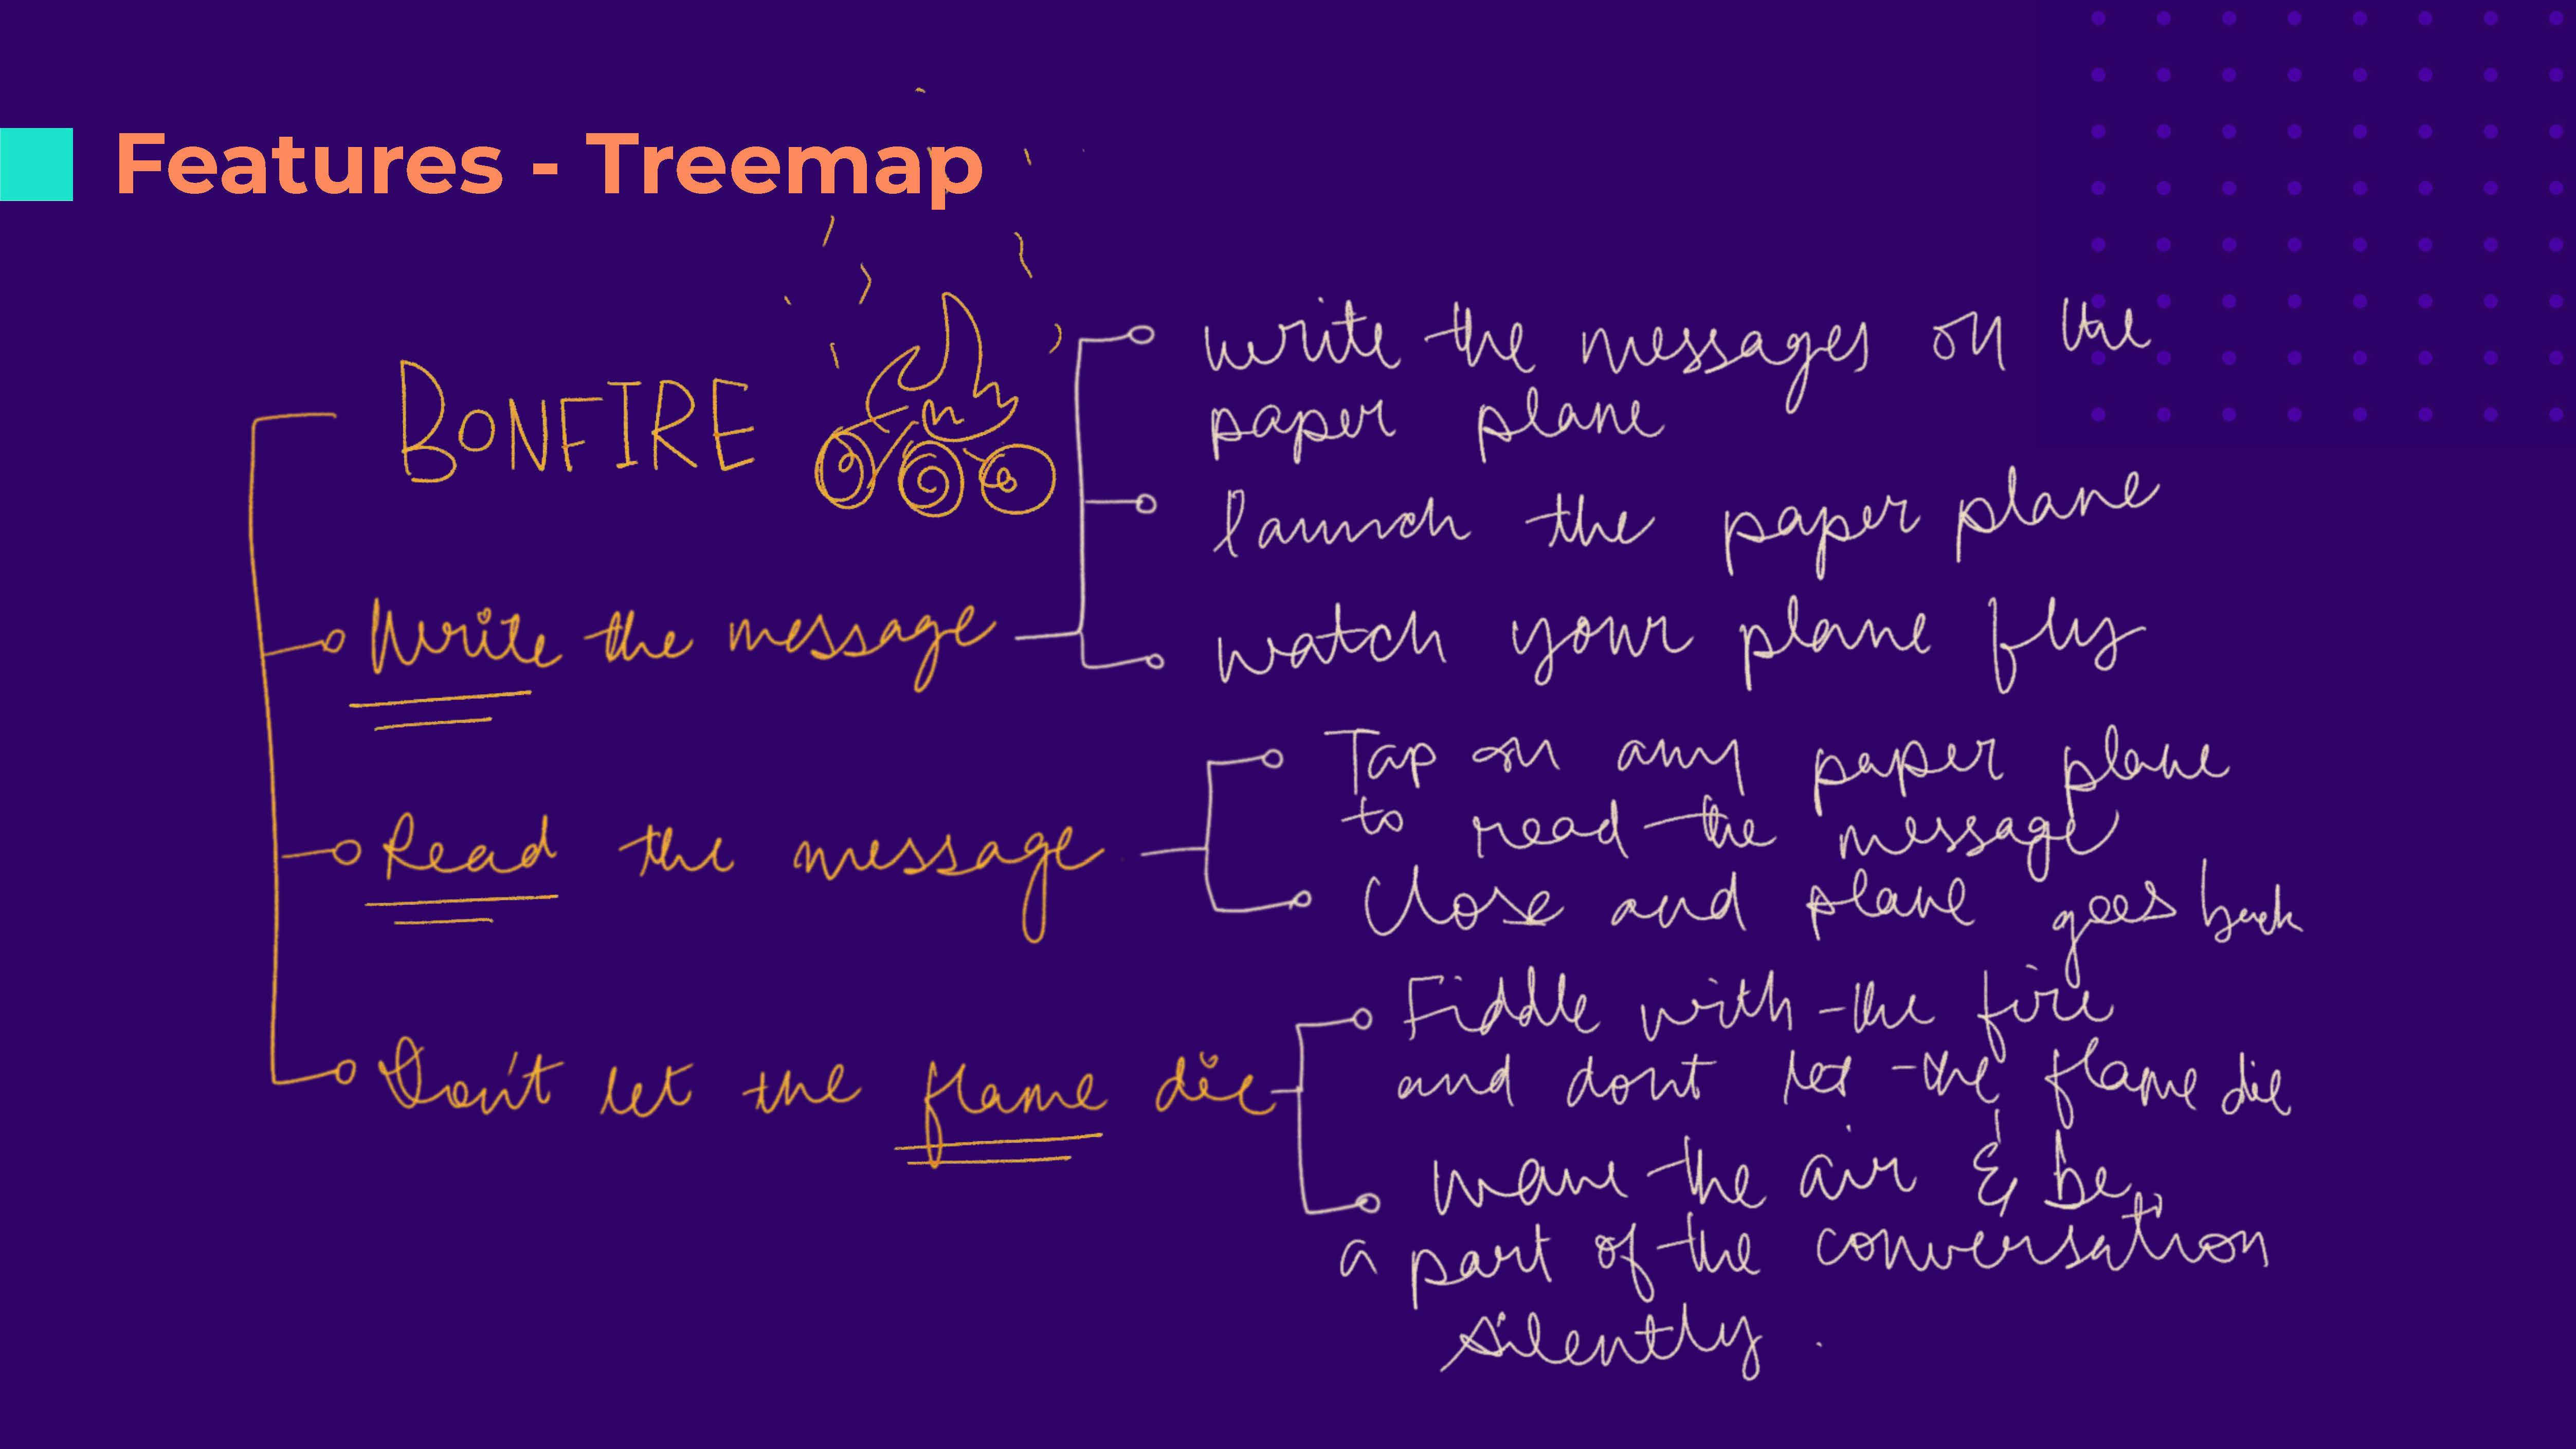 Features - Treemap
BONFIRE
Write the message
write the messages on the
paper plane
launch the paper plane
watch your plane fly
Read the message
Tap on any paper plane
to read the message
Close and plane goes back
Don't let the flame die
Fiddle with the fire
and dont let the flame die
wave the air & be
a part of the conversation
silently.